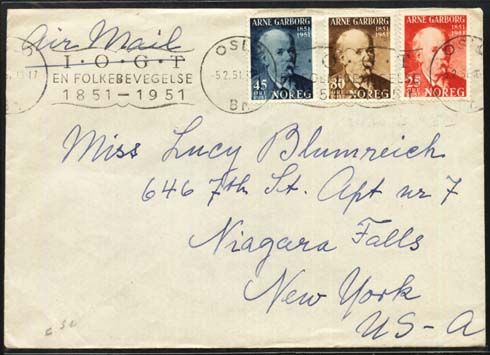 Air Mail
I·O·G·T
EN FOLKEBEVEGELSE
1851-1951
OSLO
-5.2.51.
Br
ARNE GARBORG
1851
1951
45
NOREG
ARNE GARBORG
1851
1951
80
NOREG
ARNE GARBORG
1851
1951
25
NOREG
OS
Miss Lucy Blumreich
646 7th St. Apt nr 7
Niagara Falls
New York
US-A